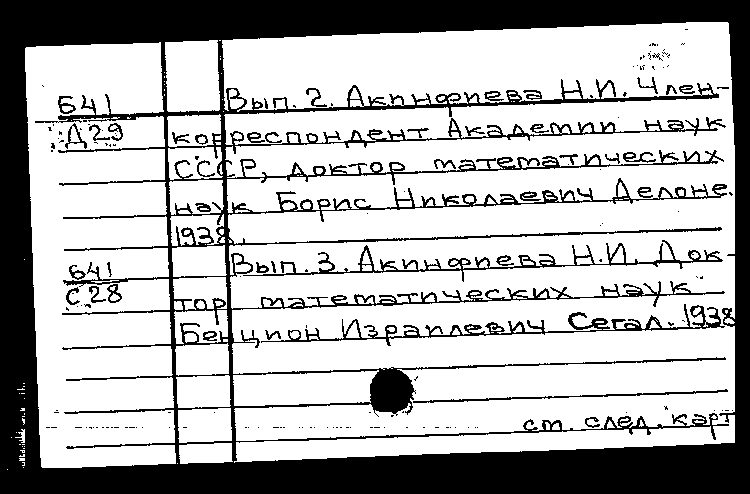 641 Вып. 2. Акинфиева Н.И. Член-
Д29 корреспондент Академии наук
СССР, доктор математических
наук Борис Николаевич Делоне.
1938.
641 Вып. 3. Акинфиева Н.И. Док-
С28 тор математических наук
Бенцион Израилевич Сегал. 1938
см. след. карт